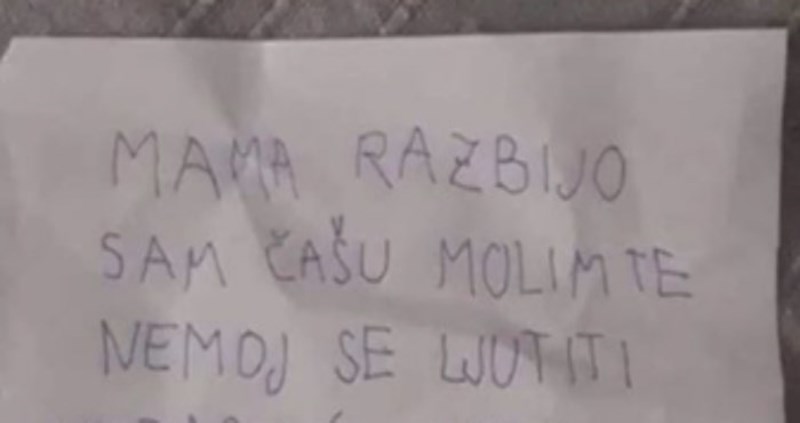 MAMA RAZBIJO
SAM ČAŠU MOLIMTE
NEMOJ SE LJUTITI